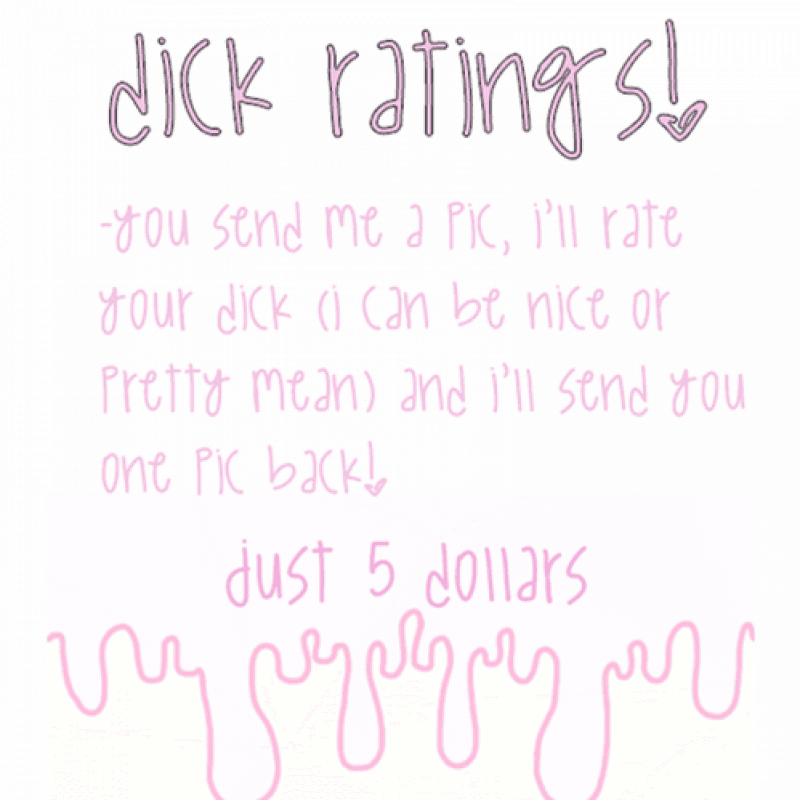 dick ratings!
-you send me a pic, i'll rate
your dick (i can be nice or
pretty mean) and i'll send you
one pic back!
just 5 dollars